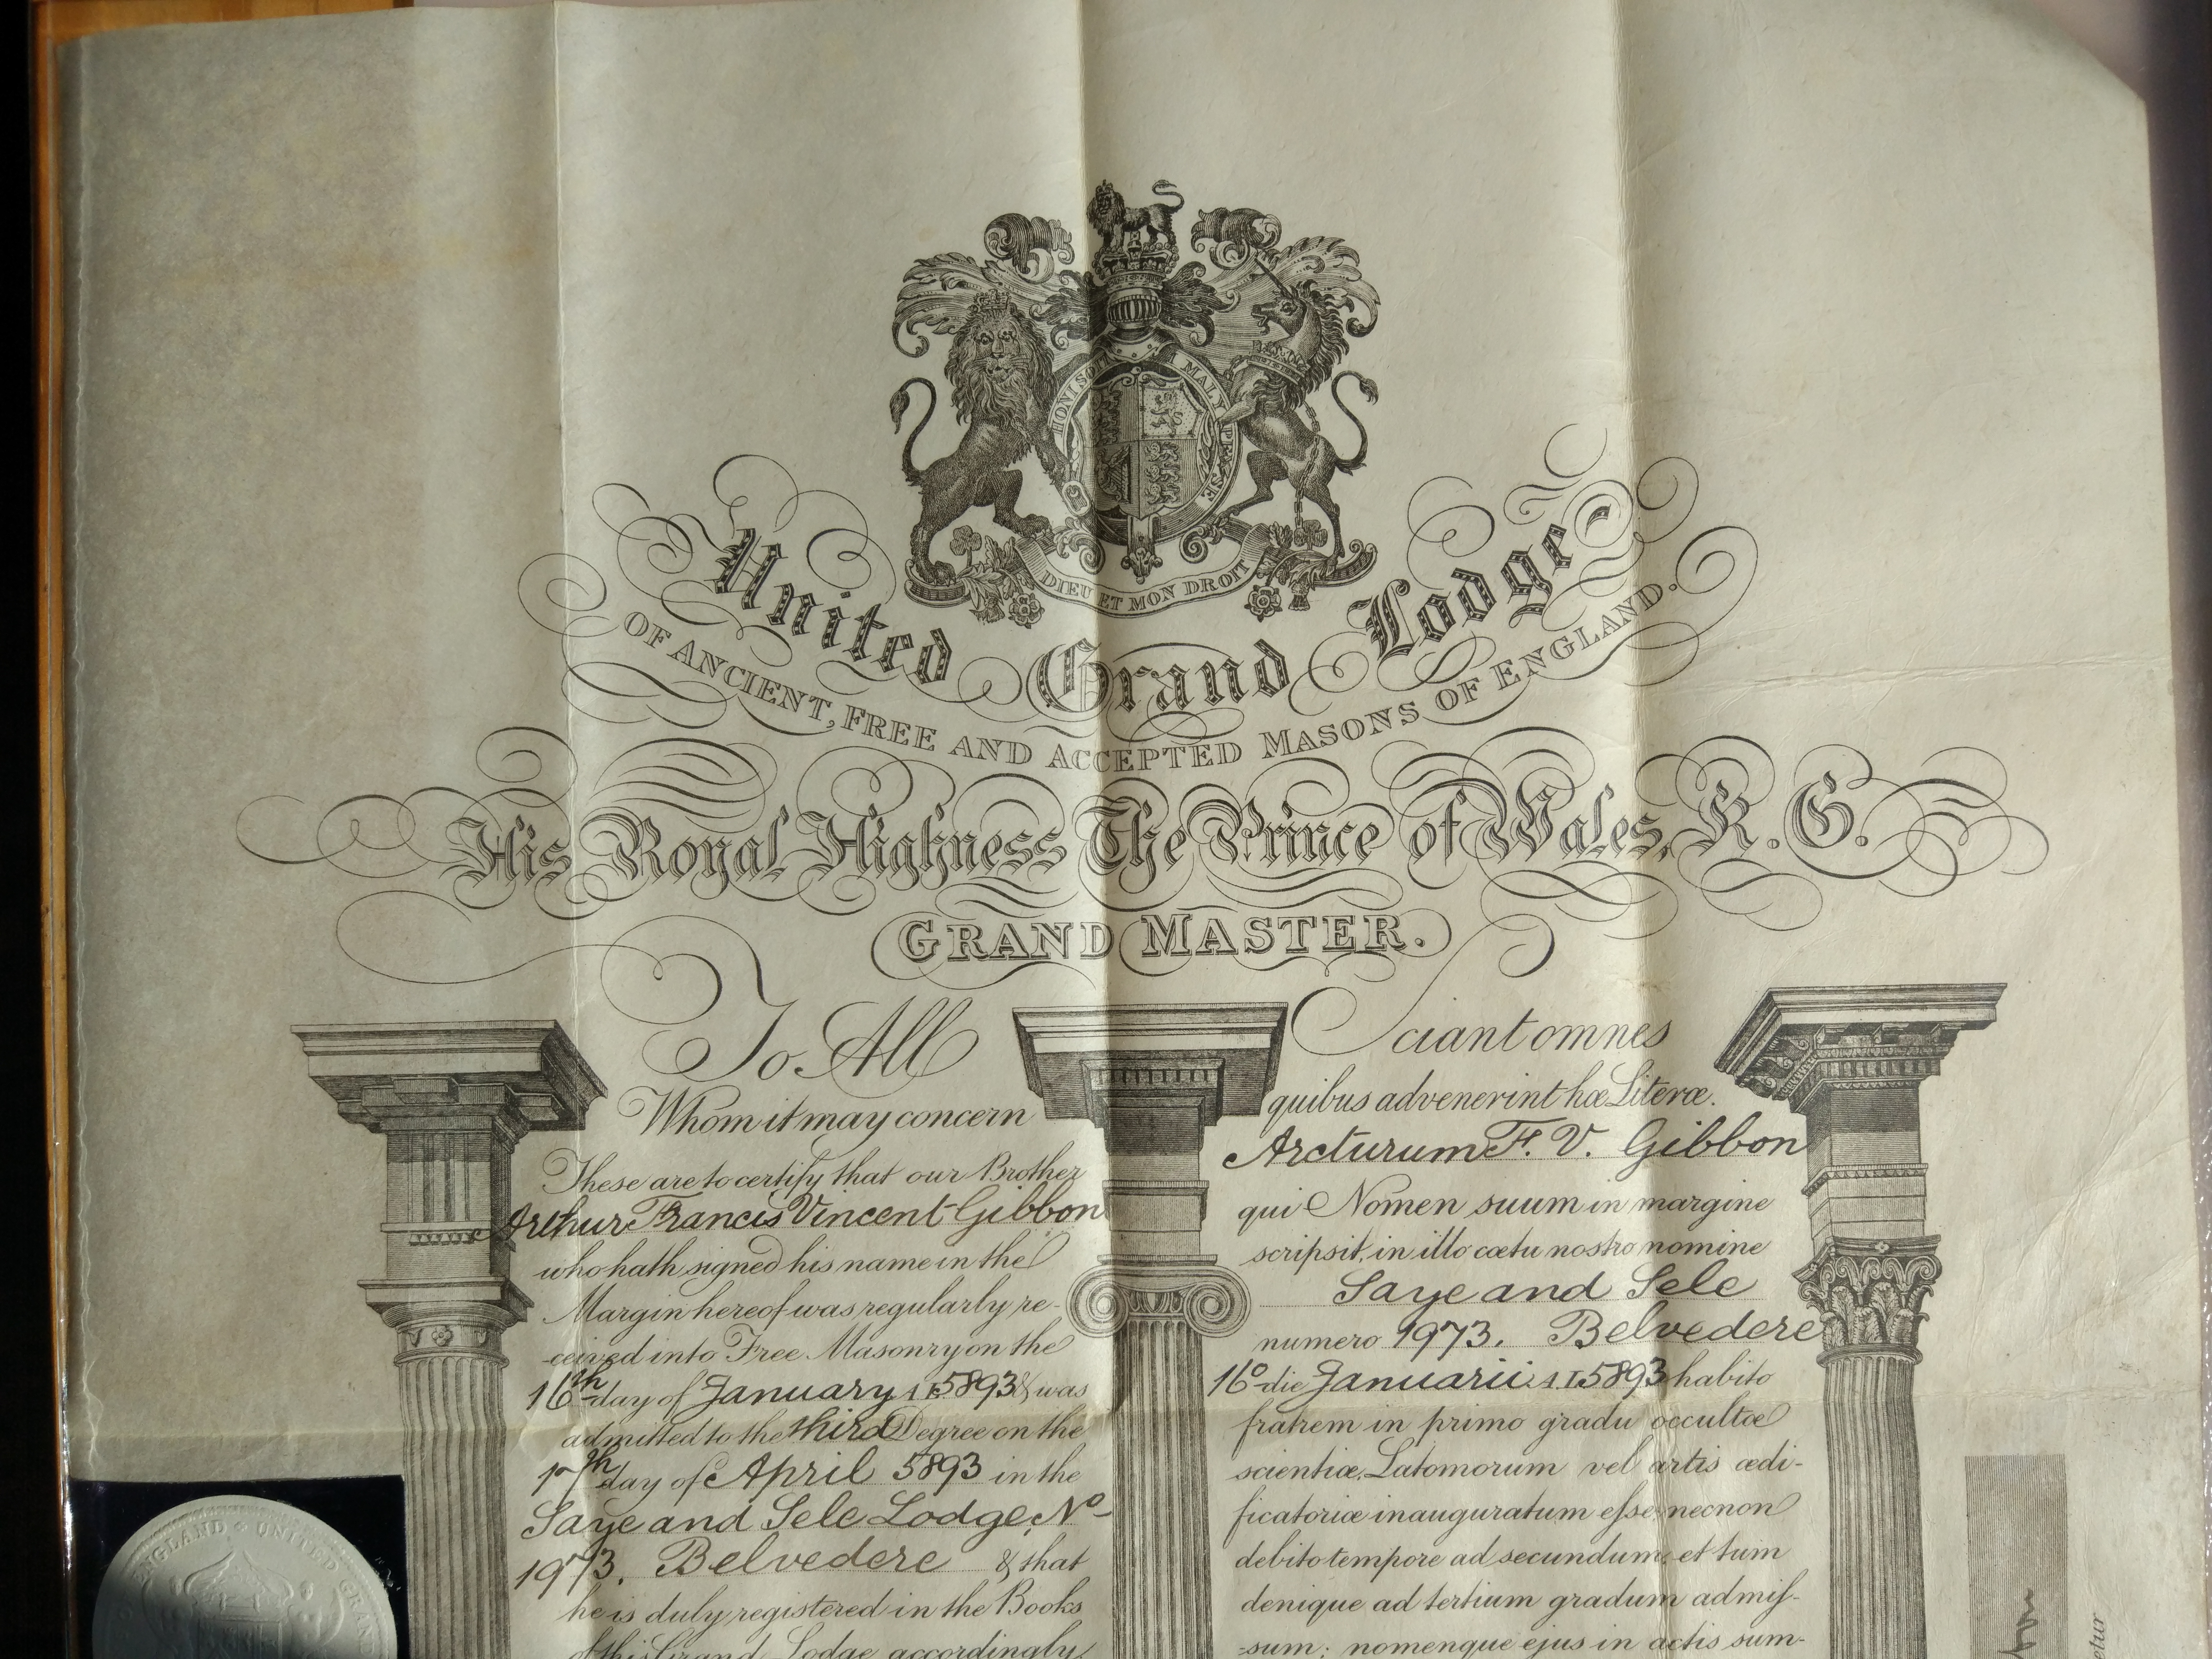 HONI SOIT MAL Y PENSE
DIEU ET MON DROIT
United Grand Lodge
OF ANCIENT, FREE AND ACCEPTED MASONS OF ENGLAND.
His Royal Highness The Prince of Wales, K. G.
GRAND MASTER.
To All
Whom it may concern
These are to certify that our Brother
Arthur Francis Vincent Gibbon
who hath signed his name in the
Margin hereof was regularly re-
-ceived into Free Masonry on the
16th day of January 5893 & was
admitted to the third Degree on the
17th day of April 5893 in the
Saye and Sele Lodge No
1973. Belvedere & that
he is duly registered in the Books
of this Grand Lodge accordingly
Sciant omnes
quibus advenerint hæ Literæ.
Arcturum F. V. Gibbon
qui Nomen suum in margine
scripsit, in illo cœtu nostro nomine
Saye and Sele
numero 1973. Belvedere
16o die Januarii 5893 habito
fratrem in primo gradu occultæ
scientiæ Latomorum vel artis ædi-
ficatoriæ inauguratum eſse necnon
debito tempore ad secundum et tum
denique ad tertium gradum admiſ-
-sum; nomenque ejus in actis sum-
ENGLAND UNITED GRAND
etur